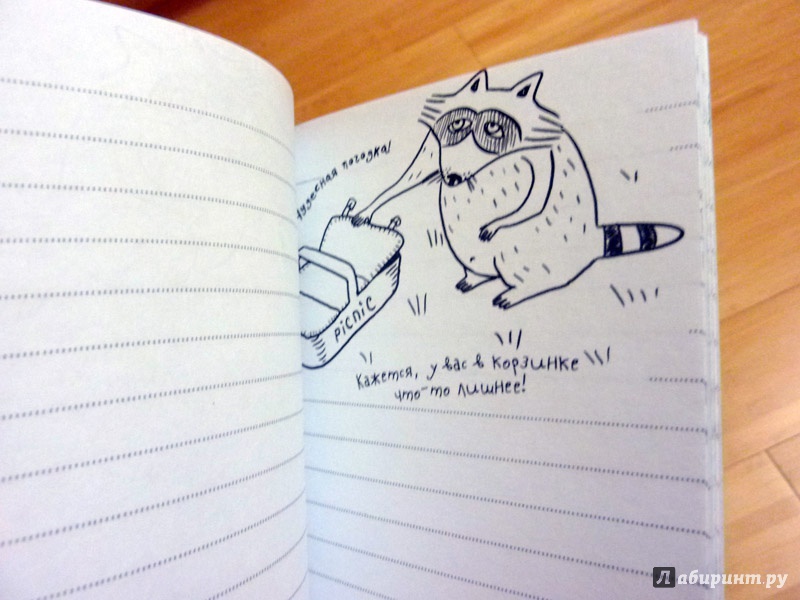 чудесная погодка!
PiCNiC
Кажется, у вас в корзинке
что-то лишнее!
Лабиринт.ру